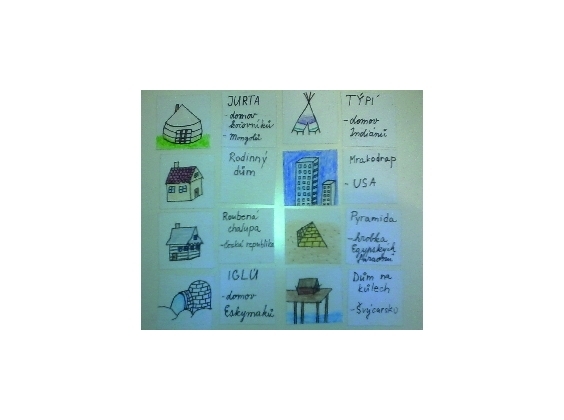 JURTA
- domov
kočovníků
- Mongolů
TÝPÍ
- domov
Indiánů
Rodinný
dům
Mrakodrap
- USA
Roubená
chalupa
- Česká republika
Pyramida
- hrobka
Egyptských
IGLÚ
- domov
Eskymáků
Dům na
kůlech
- Švýcarsko